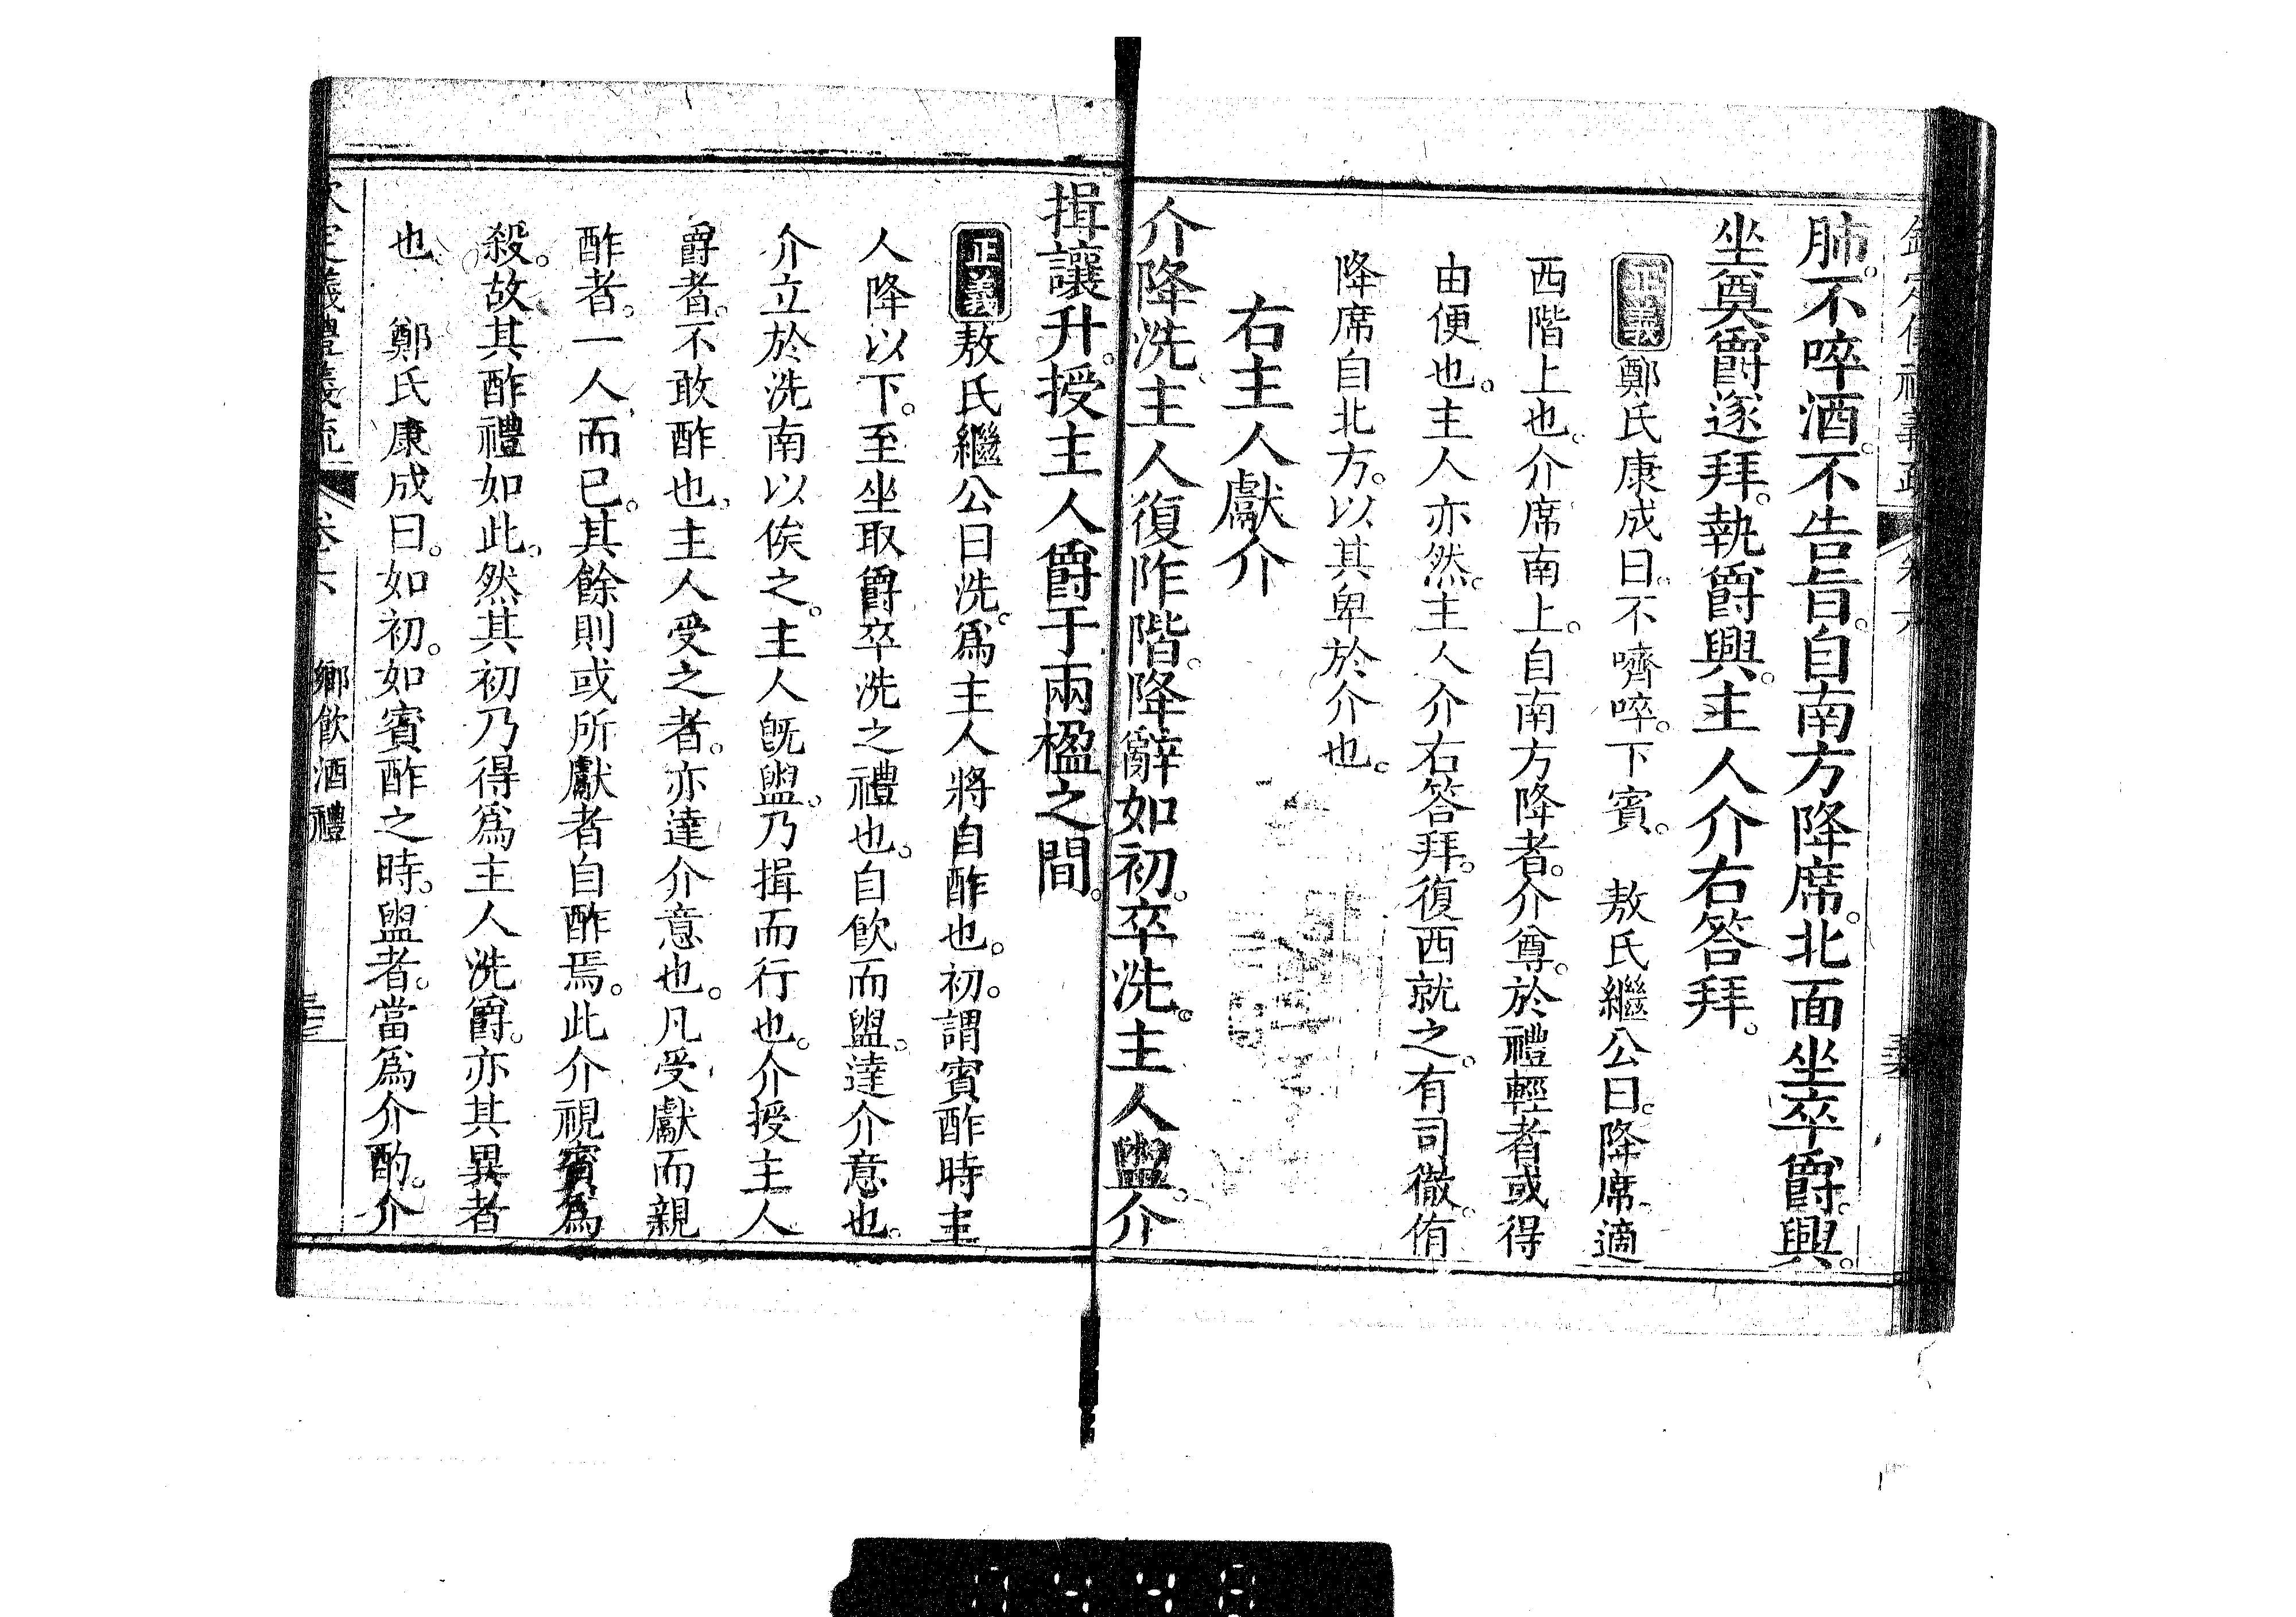 肺。不啐酒。不告旨。自南方降席。北面坐卒爵。興。
坐奠爵遂拜。執爵興。主人介右答拜。
正義鄭氏康成曰。不嚌啐。下賓。　敖氏繼公曰。降席。適
西階上也。介席南上。自南方降者。介尊。於禮輕者或得
由便也。主人亦然。主人介右答拜。復西就之。有司徹。侑
降席自北方。以其卑於介也。
右主人獻介
介降洗。主人復阼階。降辭如初。卒洗。主人盥。介
揖讓升。授主人爵于兩楹之間。
正義敖氏繼公曰洗。爲主人將自酢也。初。謂賓酢時主
人降以下。至坐取爵卒洗之禮也。自飲而盥。達介意也。
介立於洗南以俟之。主人旣盥。乃揖而行也。介授主人
爵者。不敢酢也。主人受之者。亦達介意也。凡受獻而親
酢者。一人而已。其餘則或所獻者自酢焉。此介視賓爲
殺。故其酢禮如此。然其初乃得爲主人洗爵。亦其異者
也　鄭氏康成曰。如初。如賓酢之時。盥者。當爲介酌。介
欽定義禮義疏　卷六　鄉飲酒禮